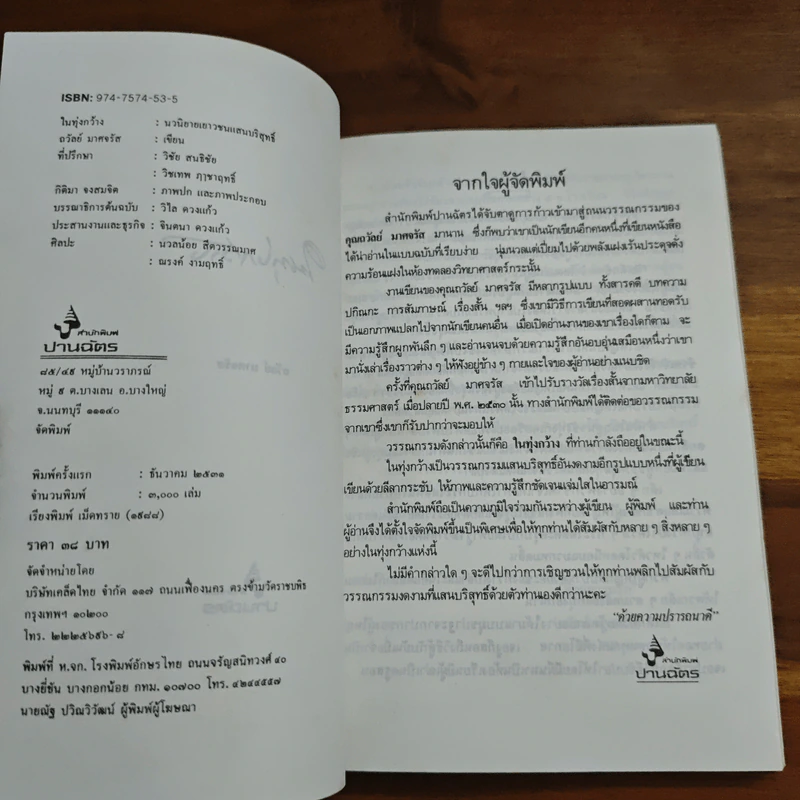 ISBN: 974-7574-53-5
ในทุ่งกว้าง : นวนิยายเยาวชนแสนบริสุทธิ์
ถวัลย์ มาศจรัส : เขียน
ที่ปรึกษา : วิชัย สนธิชัย
: วิชเทพ ฦาชาฤทธิ์
กิติมา จงสมจิต : ภาพปก และภาพประกอบ
บรรณาธิการต้นฉบับ : วิไล ดวงแก้ว
ประสานงานและธุรกิจ : จินตนา ดวงแก้ว
ศิลปะ : นวลน้อย สีตวรรณมาศ
: ณรงค์ งามฤทธิ์
สำนักพิมพ์
ปานฉัตร
๘๕/๔๙ หมู่บ้านวราภรณ์
หมู่ ๙ ต.บางเลน อ.บางใหญ่
จ.นนทบุรี ๑๑๑๔๐
จัดพิมพ์
พิมพ์ครั้งแรก : ธันวาคม ๒๕๓๑
จำนวนพิมพ์ : ๓,๐๐๐ เล่ม
เรียงพิมพ์ เม็ดทราย (๑๙๘๘)
ราคา ๓๘ บาท
จัดจำหน่ายโดย
บริษัทเคล็ดไทย จำกัด ๑๑๗ ถนนเฟื่องนคร ตรงข้ามวัดราชบพิธ
กรุงเทพฯ ๑๐๒๐๐
โทร. ๒๒๒๕๖๙๖-๘
พิมพ์ที่ ห.จก. โรงพิมพ์อักษรไทย ถนนจรัญสนิทวงศ์ ๔๐
บางยี่ขัน บางกอกน้อย กทม. ๑๐๗๐๐ โทร. ๔๒๔๔๕๕๗
นายณัฐ ปวิณวิวัฒน์ ผู้พิมพ์ผู้โฆษณา
จากใจผู้จัดพิมพ์
สำนักพิมพ์ปานฉัตรได้จับตาดูการก้าวเข้ามาสู่ถนนวรรณกรรมของ
คุณถวัลย์ มาศจรัส มานาน ซึ่งก็พบว่าเขาเป็นนักเขียนอีกคนหนึ่งที่เขียนหนังสือ
ได้น่าอ่านในแบบฉบับที่เรียบง่าย นุ่มนวลแต่เปี่ยมไปด้วยพลังแฝงเร้นประดุจดั่ง
ความร้อนแฝงในห้องทดลองวิทยาศาสตร์กระนั้น
งานเขียนของคุณถวัลย์ มาศจรัส มีหลากรูปแบบ ทั้งสารคดี บทความ
ปกิณกะ การสัมภาษณ์ เรื่องสั้น ฯลฯ ซึ่งเขามีวิธีการเขียนที่สอดผสานทอดรับ
เป็นเอกภาพแปลกไปจากนักเขียนคนอื่น เมื่อเปิดอ่านงานของเขาเรื่องใดก็ตาม จะ
มีความรู้สึกผูกพันลึก ๆ และอ่านจนจบด้วยความรู้สึกอันอบอุ่นเสมือนหนึ่งว่าเขา
มานั่งเล่าเรื่องราวต่าง ๆ ให้ฟังอยู่ข้าง ๆ กายและใจของผู้อ่านอย่างแนบชิด
ครั้งที่คุณถวัลย์ มาศจรัส เข้าไปรับรางวัลเรื่องสั้นจากมหาวิทยาลัย
ธรรมศาสตร์ เมื่อปลายปี พ.ศ. ๒๕๓๐ นั้น ทางสำนักพิมพ์ได้ติดต่อขอวรรณกรรม
จากเขาซึ่งเขาก็รับปากว่าจะมอบให้
วรรณกรรมดังกล่าวนั้นก็คือ ในทุ่งกว้าง ที่ท่านกำลังถืออยู่ในขณะนี้
ในทุ่งกว้างเป็นวรรณกรรมแสนบริสุทธิ์อันงดงามอีกรูปแบบหนึ่งที่ผู้เขียน
เขียนด้วยลีลากระชับ ให้ภาพและความรู้สึกชัดเจนแจ่มใสในอารมณ์
สำนักพิมพ์ถือเป็นความภูมิใจร่วมกันระหว่างผู้เขียน ผู้พิมพ์ และท่าน
ผู้อ่านจึงได้ตั้งใจจัดพิมพ์ขึ้นเป็นพิเศษเพื่อให้ทุกท่านได้สัมผัสกับหลาย ๆ สิ่งหลาย ๆ
อย่างในทุ่งกว้างแห่งนี้
ไม่มีคำกล่าวใด ๆ จะดีไปกว่าการเชิญชวนให้ทุกท่านพลิกไปสัมผัสกับ
วรรณกรรมงดงามที่แสนบริสุทธิ์ด้วยตัวท่านเองดีกว่านะคะ
“ด้วยความปรารถนาดี”
สำนักพิมพ์
ปานฉัตร